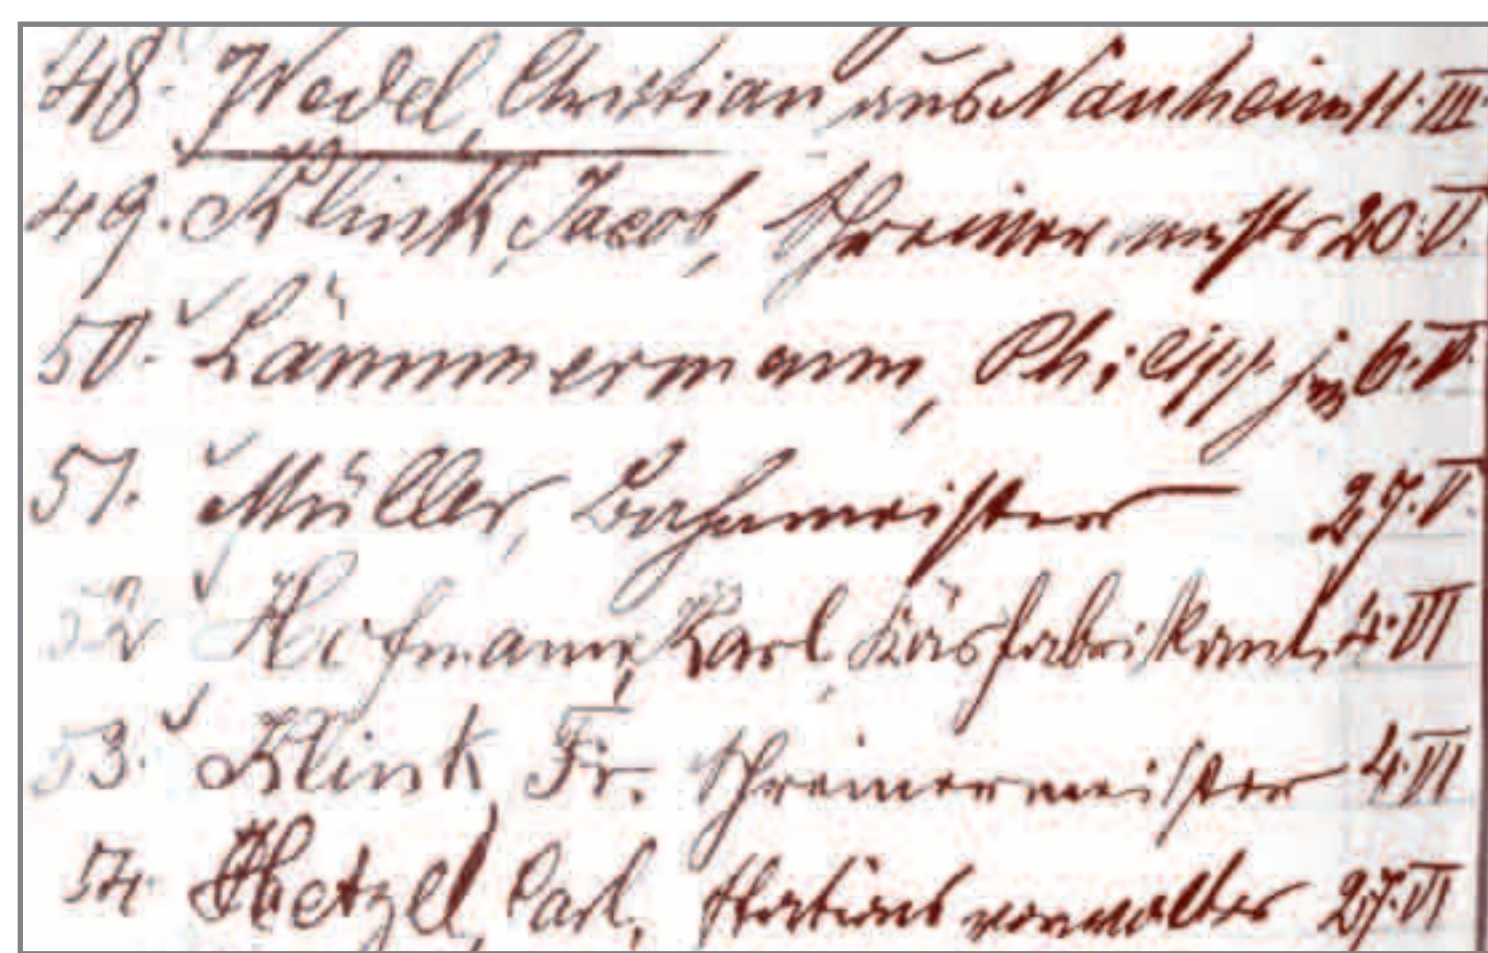 48. Wedel, Christian aus Nauheim 11. III.
49. Klink, Jacob, Schreinermstr 20. V.
50. Lämmermann, Philipp jr 6. V.
51. Müller, Bahnmeister 27. V.
52 Hofmann, Karl, Käsfabrikant, 4. VI
53. Klink Fr. Schreinermeister 4. VI
54. Hetzel, Carl, Stationsverwalter 27. VI